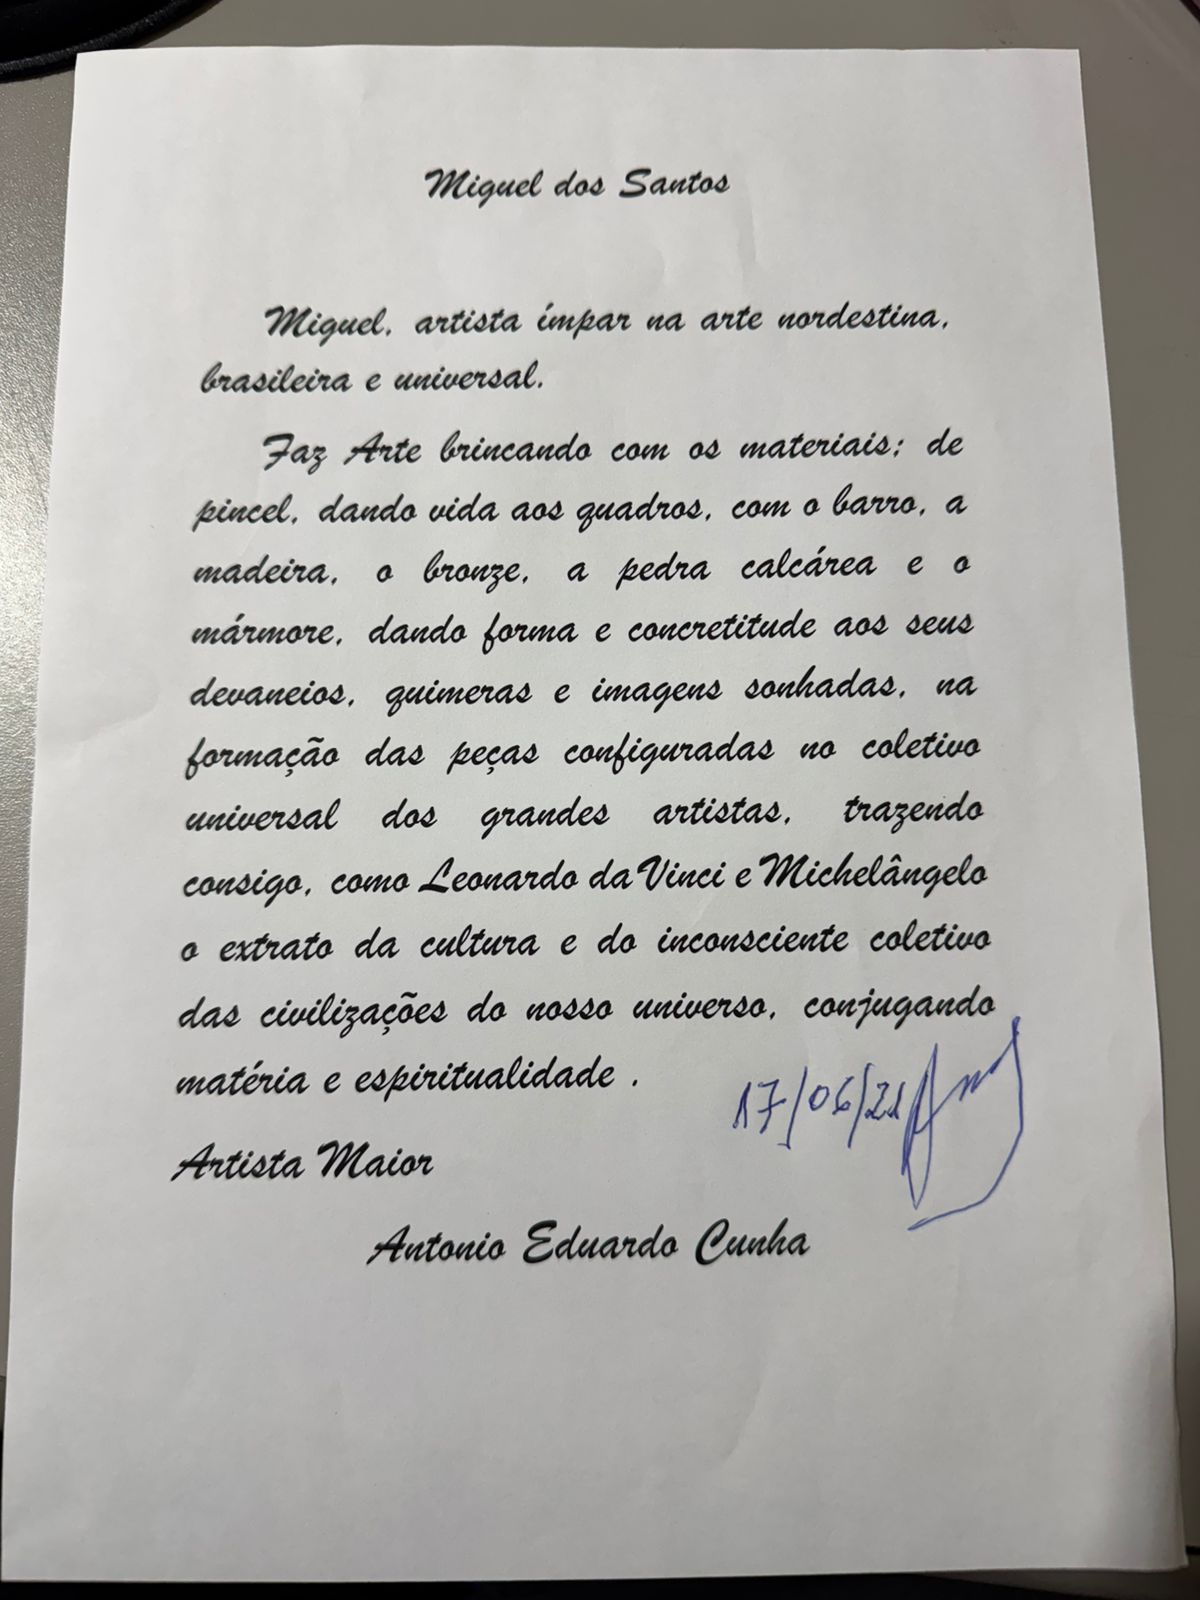 Miguel dos Santos
Miguel, artista ímpar na arte nordestina,
brasileira e universal.
Faz Arte brincando com os materiais; de
pincel, dando vida aos quadros, com o barro, a
madeira, o bronze, a pedra calcárea e o
mármore, dando forma e concretitude aos seus
devaneios, quimeras e imagens sonhadas, na
formação das peças configuradas no coletivo
universal dos grandes artistas, trazendo
consigo, como Leonardo da Vinci e Michelângelo
o extrato da cultura e do inconsciente coletivo
das civilizações do nosso universo, conjugando
matéria e espiritualidade .
17/06/21
Artista Maior
Antonio Eduardo Cunha